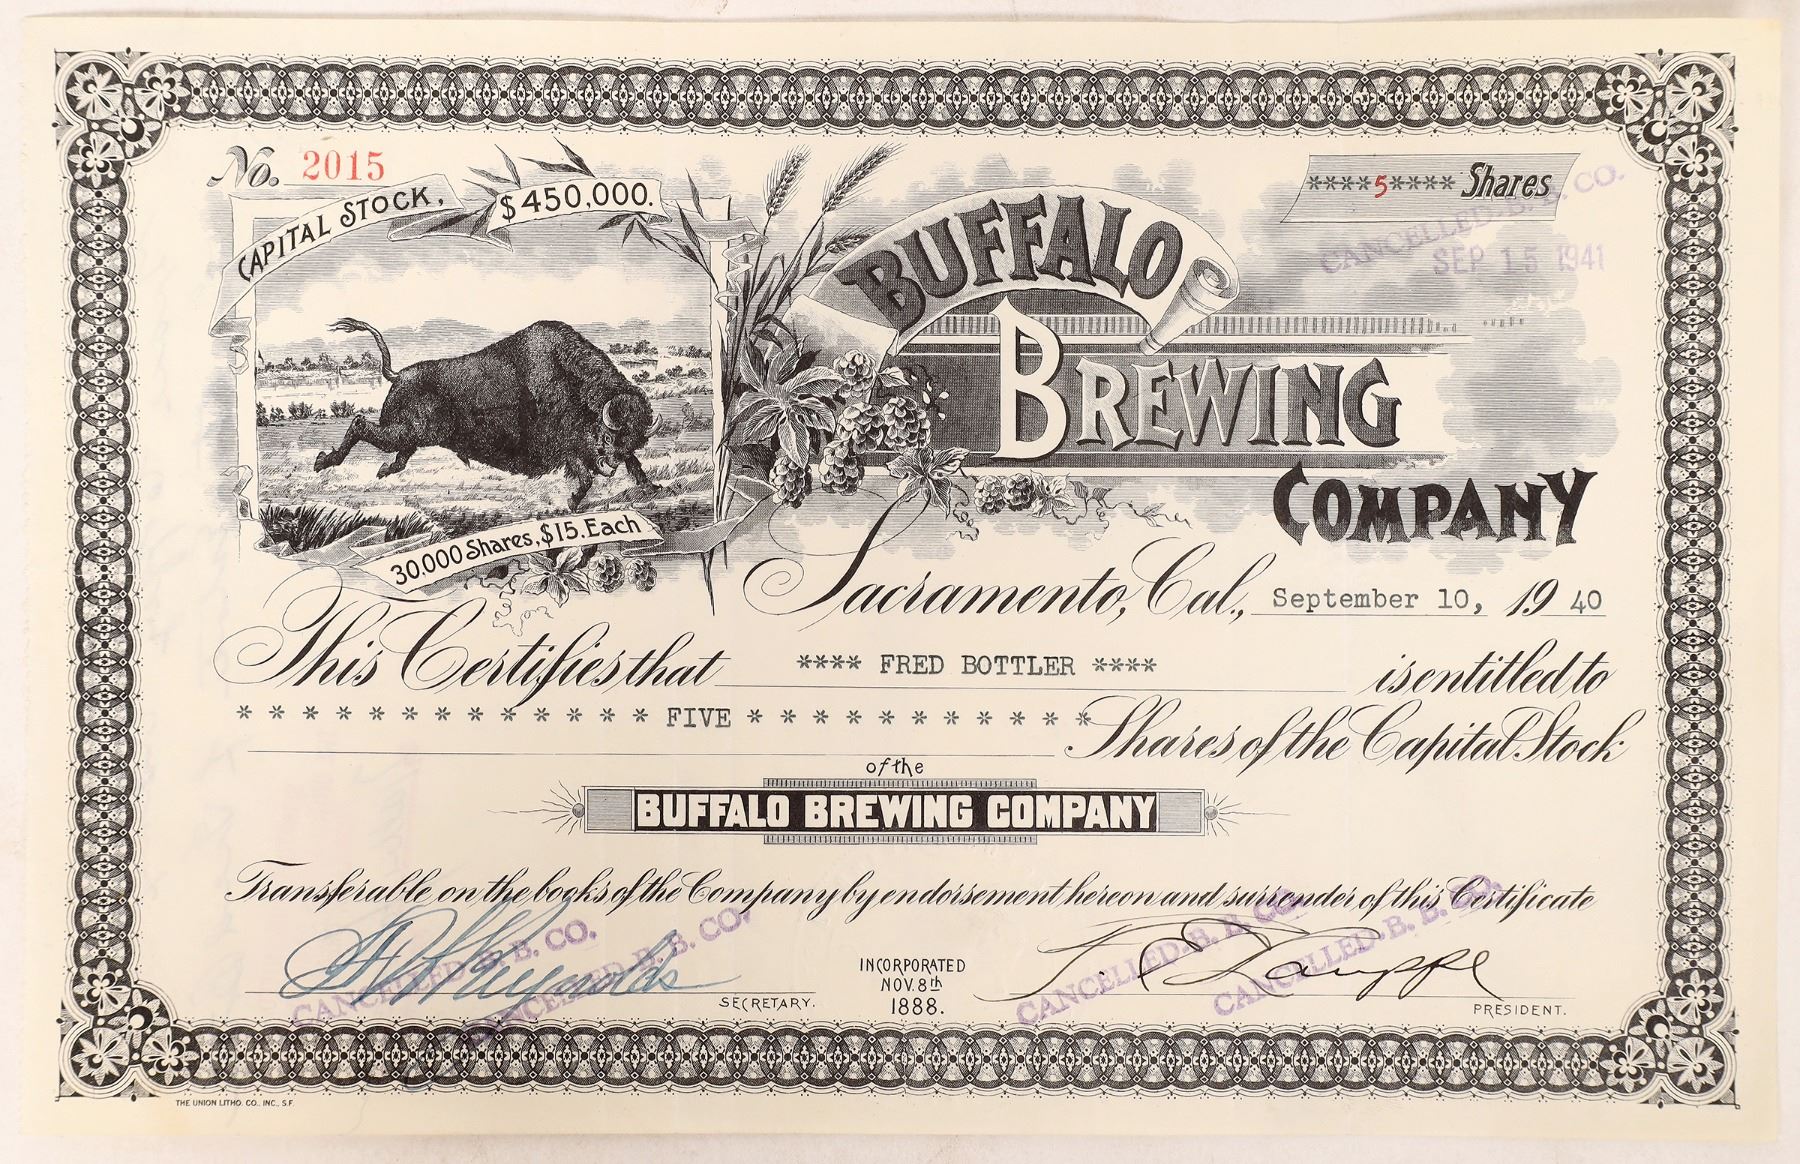 No. 2015
CAPITAL STOCK, $450,000.
****5**** Shares
CANCELLED. B. B. CO.
SEP 15 1941
BUFFALO
BREWING
COMPANY
30,000 Shares, $15. Each
Sacramento, Cal., September 10, 1940
This Certifies that **** FRED BOTTLER **** is entitled to
* * * * * * * * * * * * * FIVE * * * * * * * * * * * Shares of the Capital Stock
of the
BUFFALO BREWING COMPANY
Transferable on the books of the Company by endorsement hereon and surrender of this Certificate
CANCELLED. B. B. CO. CANCELLED. B. B. CO. CANCELLED. B. B. CO. CANCELLED. B. B. CO.
Reynolds
SECRETARY.
INCORPORATED
NOV. 8th
1888.
PRESIDENT.
THE UNION LITHO. CO., INC., S.F.